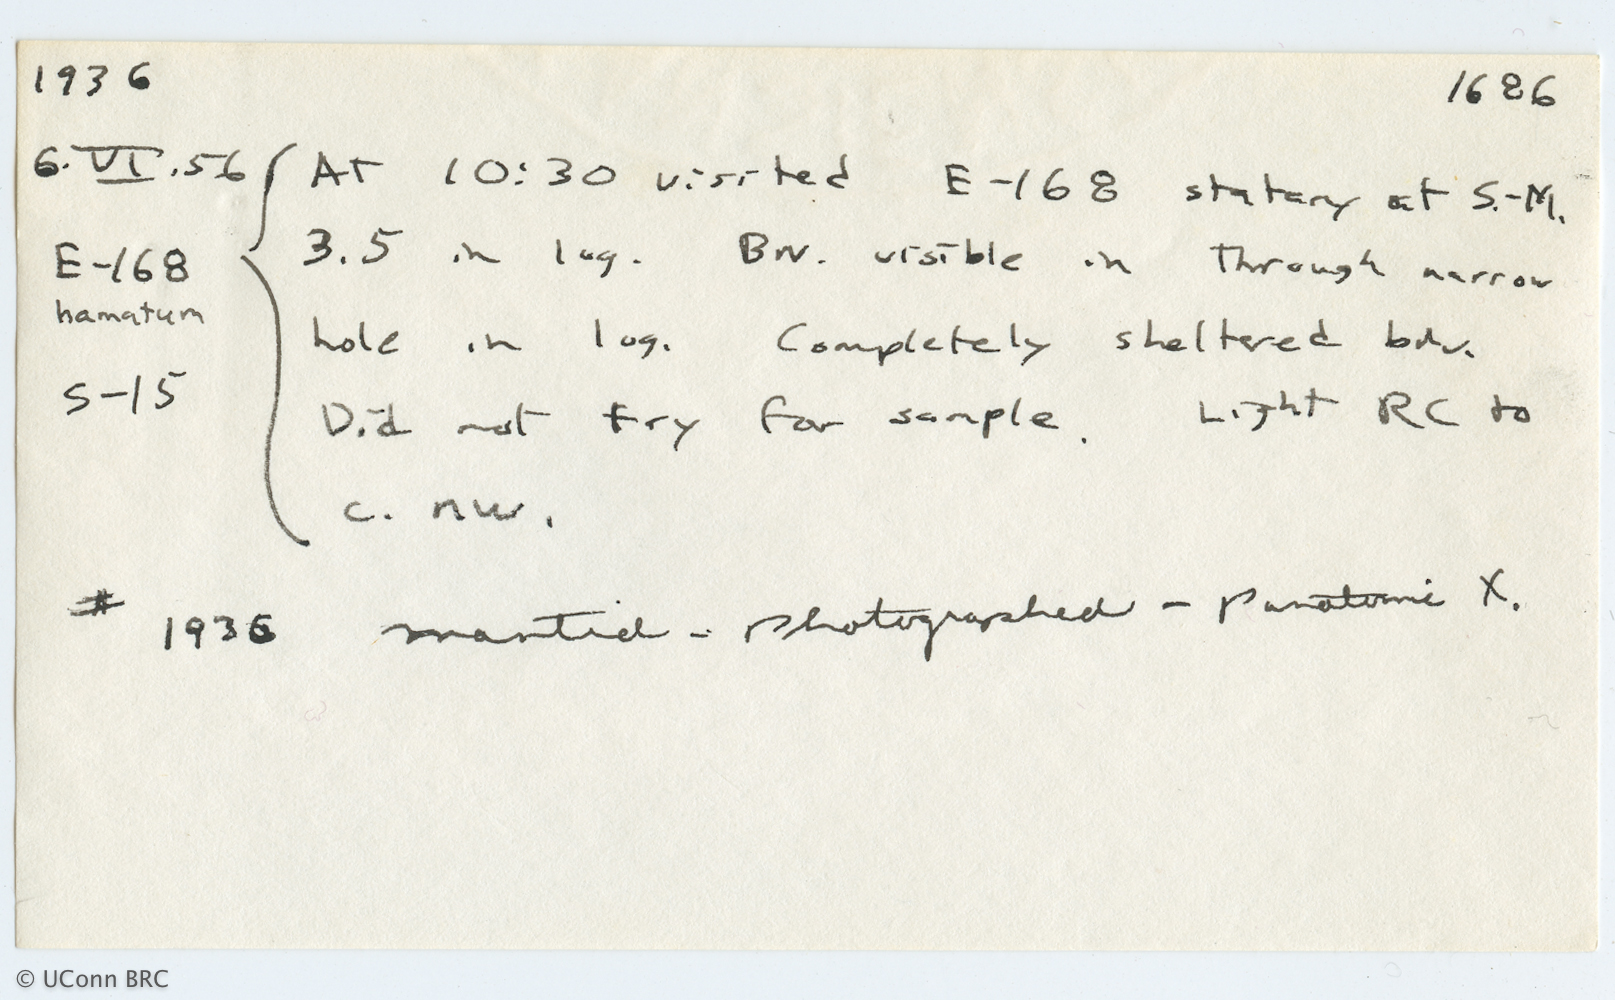 1936 1686
6.VI.56 At 10:30 visited E-168 statary at S.-M.
E-168 3.5 in log. Biv. visible in through narrow
hamatum hole in log. Completely sheltered bdv.
S-15 Did not try for sample. Light RC to
c. nw.
# 1936 mantid - photographed - Panatomic X.
© UConn BRC